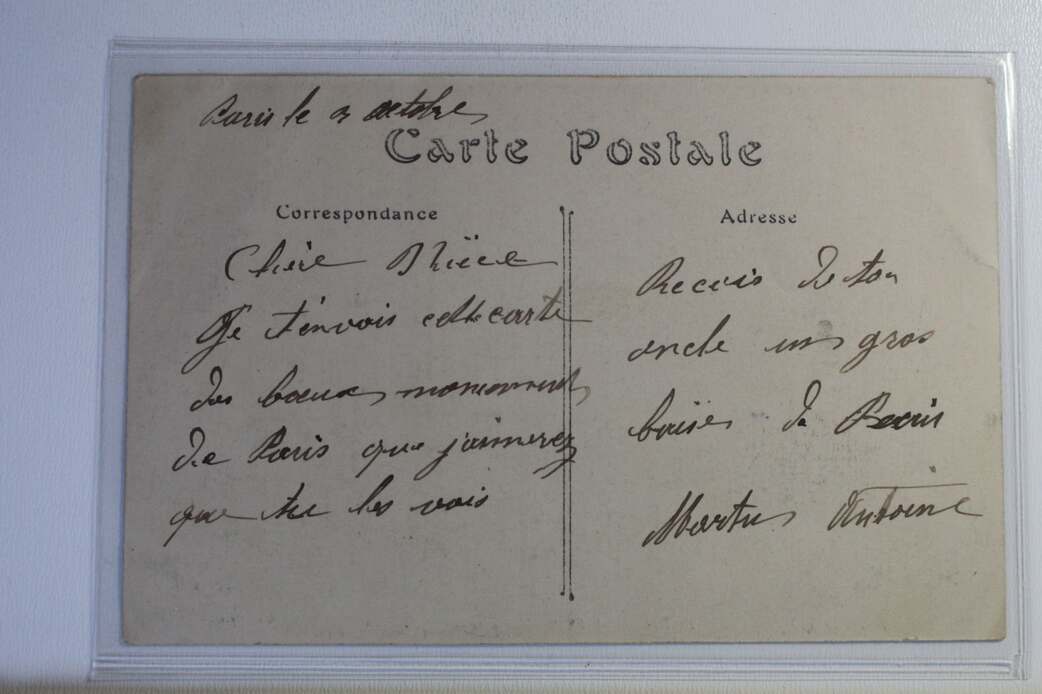 Paris le 3 octobre
Carte Postale
Correspondance
Chère Nièce
Je t'envois cette carte
des beaux monument
de Paris que j'aimerez
que tu les vois
Adresse
Recois de ton
oncle un gros
baisés de Paris
Antoine